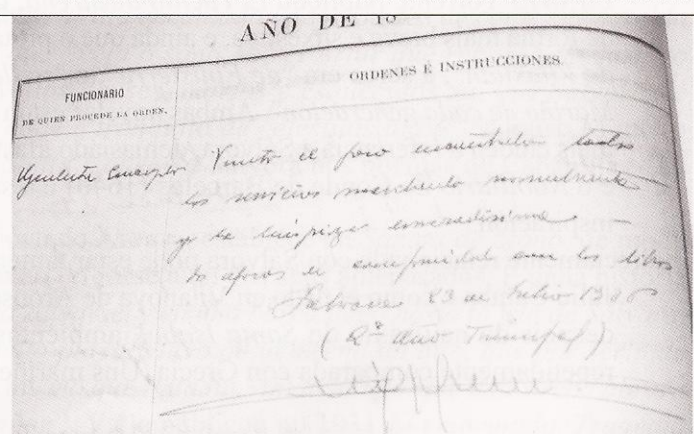 AÑO DE 18
FUNCIONARIO
DE QUIEN PROCEDE LA ORDEN.
ORDENES É INSTRUCCIONES.
Ayudante Visito el faro encontrando todos
los servicios marchando normalmente
y la limpieza esmeradísima
los aforos en conformidad con los libros
23 de Julio 193
(2º Año Triunfal)